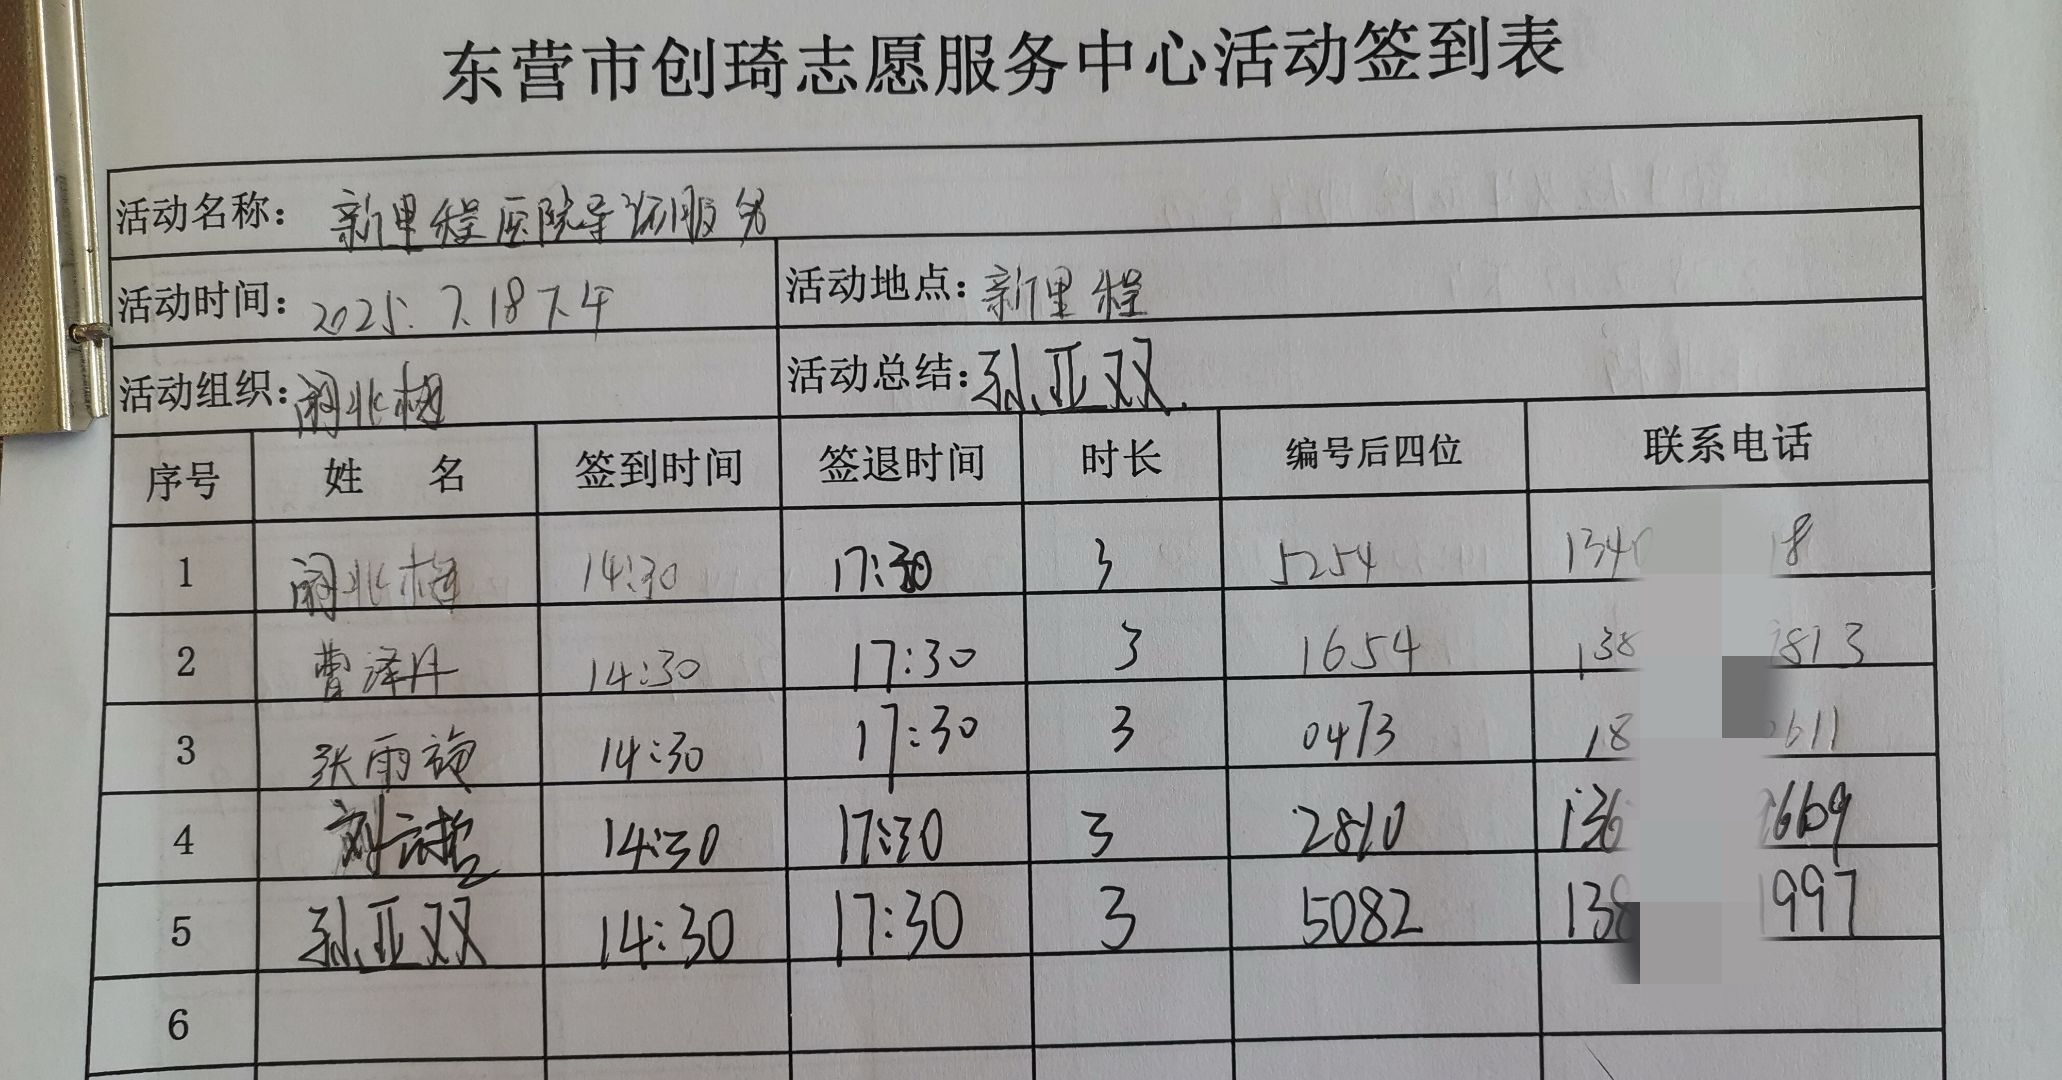 东营市创琦志愿服务中心活动签到表
活动名称: 新里程医院导诊服务
活动时间: 2025.7.18下午 活动地点: 新里程
活动组织: 闫兆梅 活动总结: 孙亚双
序号 姓 名 签到时间 签退时间 时长 编号后四位 联系电话
1 14:30 17:30 3 5254 134 18
2 曹泽丹 14:30 17:30 3 1654 138 813
3 张雨旋 14:30 17:30 3 0473 18 611
4 刘云哲 14:30 17:30 3 2810 136 669
5 孙亚双 14:30 17:30 3 5082 138 1997
6